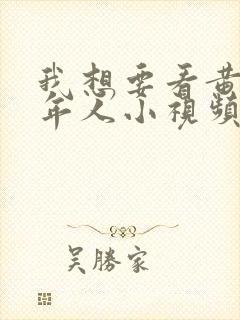 我想要看黄
年人小視頻
吴勝家